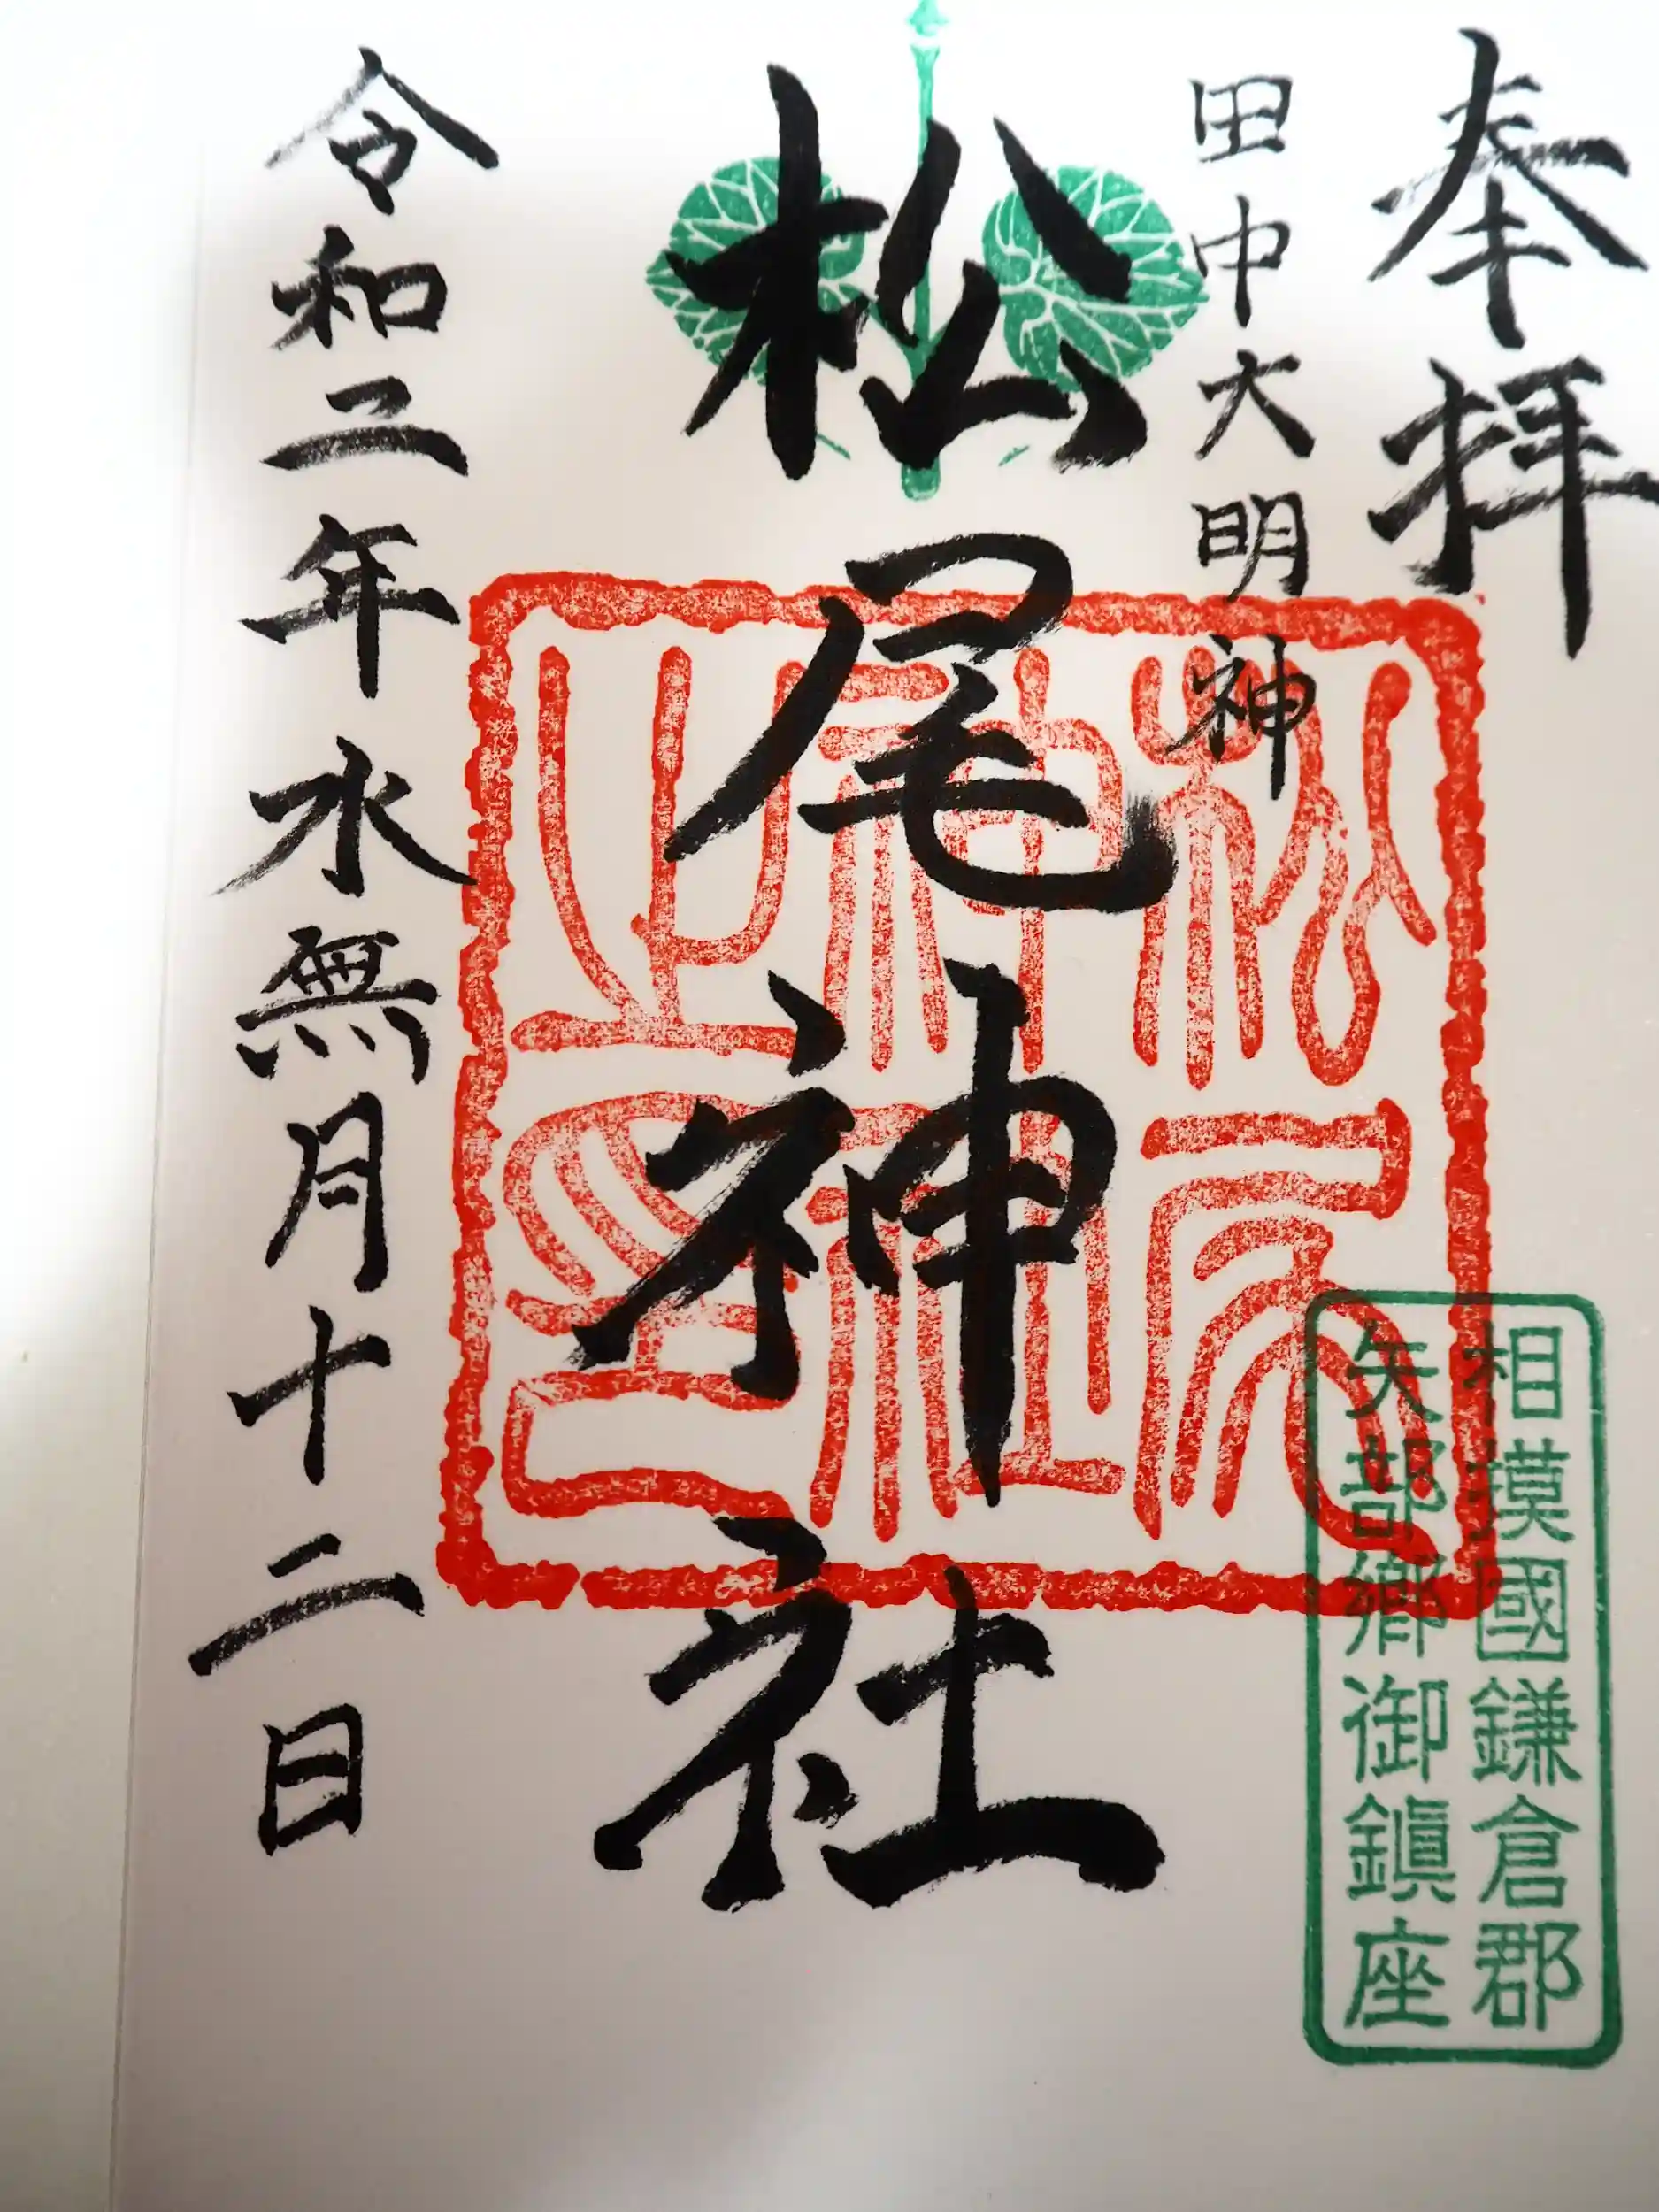 奉拝
田中大明神
松尾神社
松尾
神社
之印
相模國鎌倉郡
矢部郷御鎮座
令和二年水無月十二日